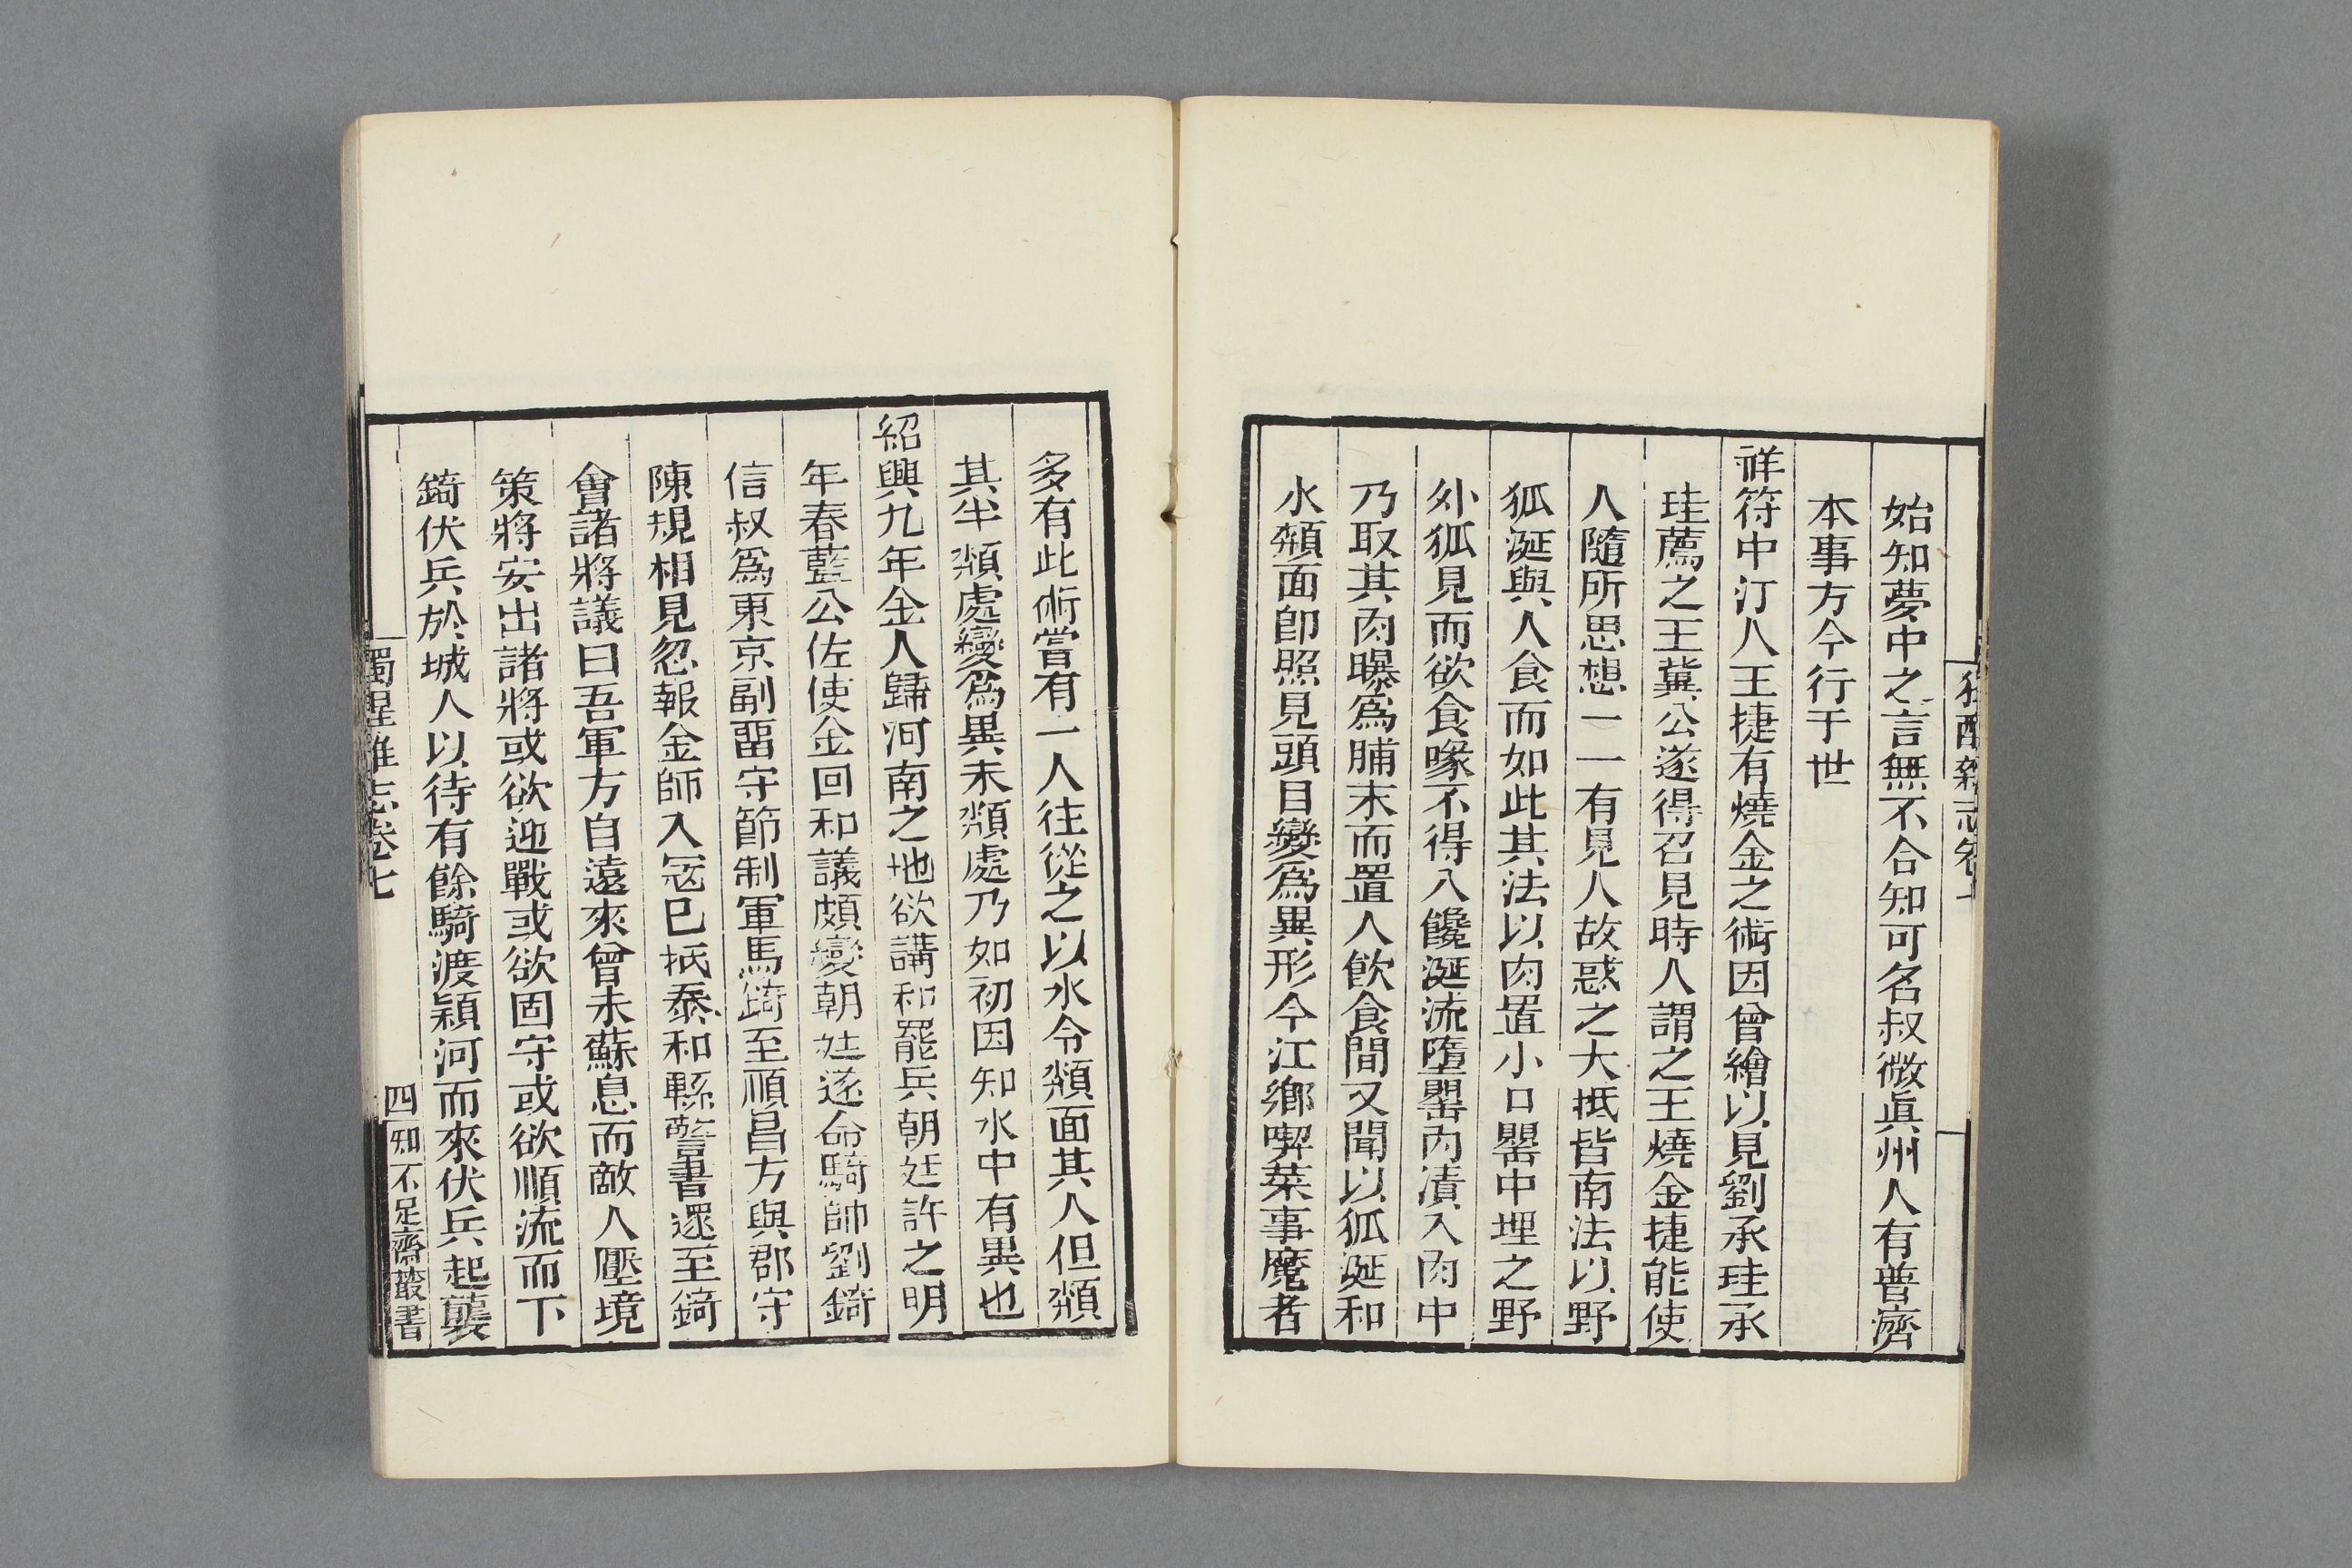 獨醒雜志卷七
始知夢中之言無不合知可名叔微眞州人有普濟
本事方今行于世
祥符中汀人王捷有燒金之術因曾繪以見劉承珪承
珪薦之王冀公遂得召見時人謂之王燒金捷能使
人隨所思想一一有見人故惑之大抵皆南法以野
狐涎與人食而如此其法以肉置小口罌中埋之野
外狐見而欲食喙不得入饞涎流墮罌內漬入肉中
乃取其肉曝爲脯末而置人飲食間又聞以狐涎和
水頮面卽照見頭目變爲異形今江鄉喫菜事魔者
多有此術嘗有一人往從之以水令頮面其人但頮
其半頮處變爲異未頮處乃如初因知水中有異也
紹興九年金人歸河南之地欲講和罷兵朝廷許之明
年春藍公佐使金回和議頗變朝廷遂命騎帥劉錡
信叔爲東京副畱守節制軍馬錡至順昌方與郡守
陳規相見忽報金師入寇已抵泰和縣警書還至錡
會諸將議曰吾軍方自遠來曾未蘇息而敵人壓境
策將安出諸將或欲迎戰或欲固守或欲順流而下
錡伏兵於城人以待有餘騎渡潁河而來伏兵起襲
獨醒雜志卷七
四
知不足齋叢書